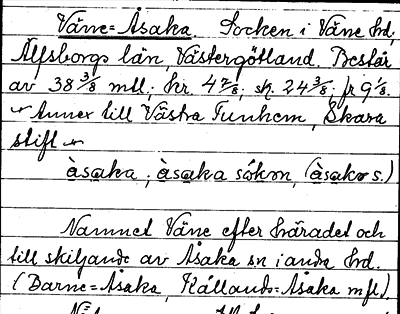 Väne-Åsaka. Socken i Väne hd,
Älfsborgs län, Västergötland. Består
av 38 3/8 mtl; kr. 4 2/8; sk. 24 3/8; fr 9 6/8.
Annex till Västra Tunhem, Skara
stift
àsaka; àsaka sókǝn, (àsakǝ s.)
Namnet Väne efter häradet och
till skiljande av Åsaka sn i andra hd.
(Barne=Åsaka, Kållands=Åsaka mfl).